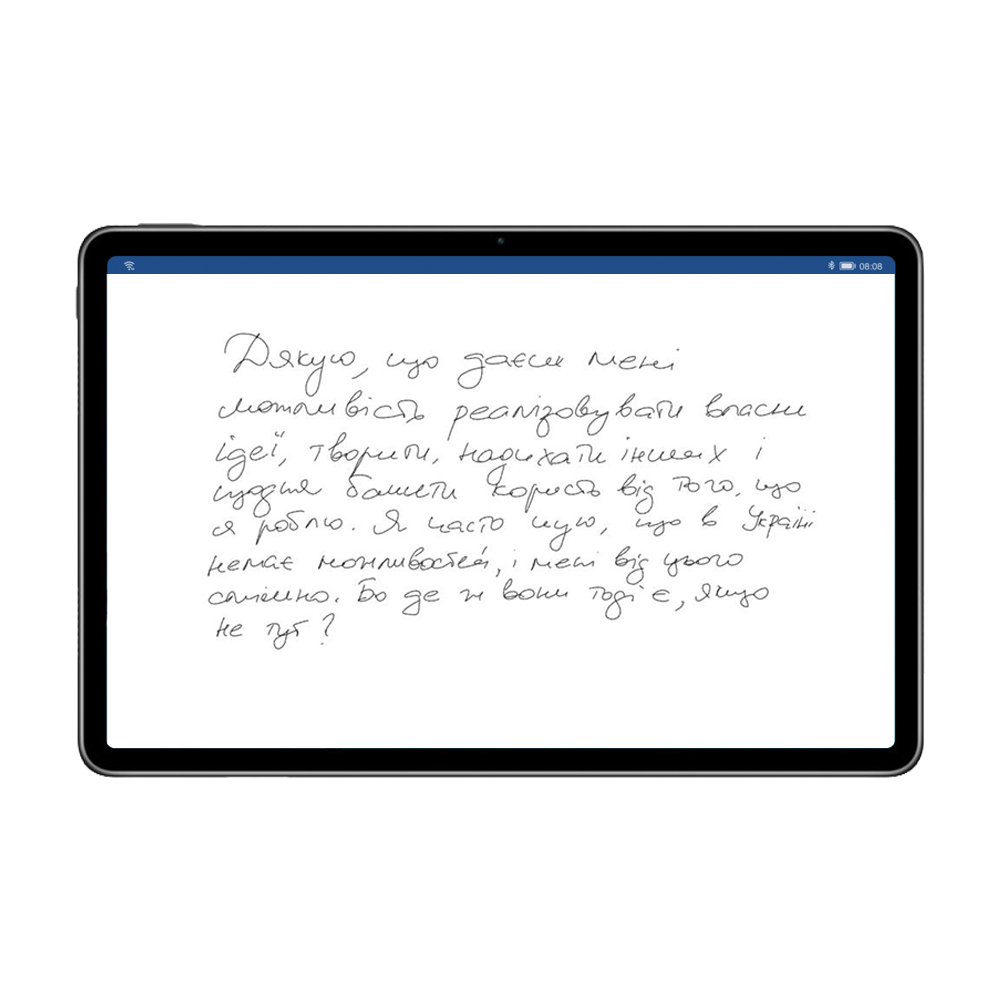 08:08
Дякую, що даєш мені
можливість реалізовувати власні
ідеї, творити, надихати інших і
щодня бачити користь від того, що
я роблю. Я часто чую, що в Україні
немає можливостей, і мені від цього
смішно. Бо де ж вони тоді є, якщо
не тут?